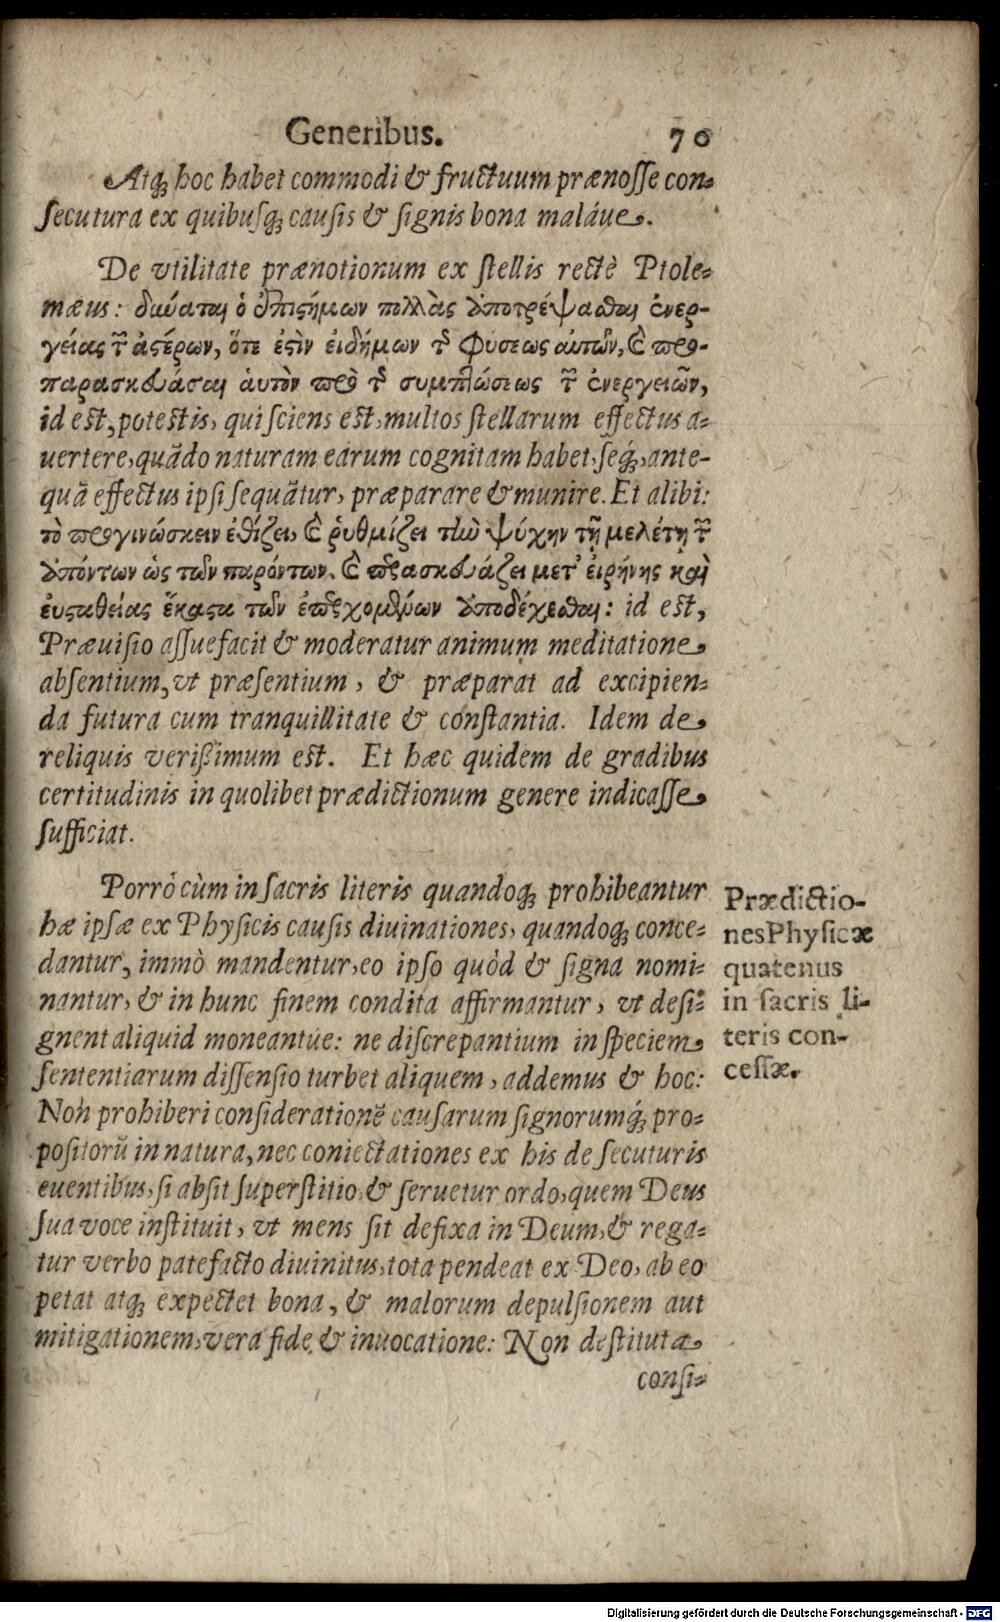 Generibus. 70
Atq; hoc habet commodi & fructuum prænosse con-
secutura ex quibusq; causis & signis bona maláue.
De vtilitate prænotionum ex stellis rectè Ptole-
mæus: δύναται ὁ ἐπιστήμων πολλὰς ἀποτρέψασθαι ἐνερ-
γείας τῶν ἀστέρων, ὅτε ἐστὶν εἰδήμων τῆς φύσεως αὐτῶν, καὶ προ-
παρασκευάσαι ἁυτὸν πρὸ τῆς συμπλώσεως τῶν ἐνεργειῶν,
id est, potest is, qui sciens est, multos stellarum effectus a-
uertere, quãdo naturam earum cognitam habet, seq́;, ante-
quã effectus ipsi sequãtur, præparare & munire. Et alibi:
τὸ προγινώσκειν ἐθίζει, καὶ ῥυθμίζει τὴν ψύχην τῇ μελέτῃ τῶν
ἀπόντων ὡς τῶν παρόντων, καὶ παρασκευάζει μετ' εἰρήνης καὶ
ἐυσταθείας ἕκαστα τῶν ἐπερχομένων ἀποδέχεσθαι: id est,
Præuisio assuefacit & moderatur animum meditatione
absentium, vt præsentium, & præparat ad excipien-
da futura cum tranquillitate & constantia. Idem de
reliquis verißimum est. Et hæc quidem de gradibus
certitudinis in quolibet prædictionum genere indicasse
sufficiat.
Porrò cùm in sacris literis quandoq; prohibeantur
hæ ipsæ ex Physicis causis diuinationes, quandoq; conce-
dantur, immò mandentur, eo ipso quòd & signa nomi-
nantur, & in hunc finem condita affirmantur, vt desi-
gnent aliquid moneantue: ne discrepantium in speciem
sententiarum dissensio turbet aliquem, addemus & hoc:
Non prohiberi consideratione͂ causarum signorumq́; pro-
positorũ in natura, nec coniectationes ex his de secuturis
euentibus, si absit superstitio, & seruetur ordo, quem Deus
sua voce instituit, vt mens sit defixa in Deum, & rega-
tur verbo patefacto diuinitus, tota pendeat ex Deo, ab eo
petat atq; expectet bona, & malorum depulsionem aut
mitigationem, vera fide & inuocatione: Non destituta
consi-
Prædictio-
nes Physicæ
quatenus
in sacris li-
teris con-
cessæ.
Digitalisierung gefördert durch die Deutsche Forschungsgemeinschaft - DFG